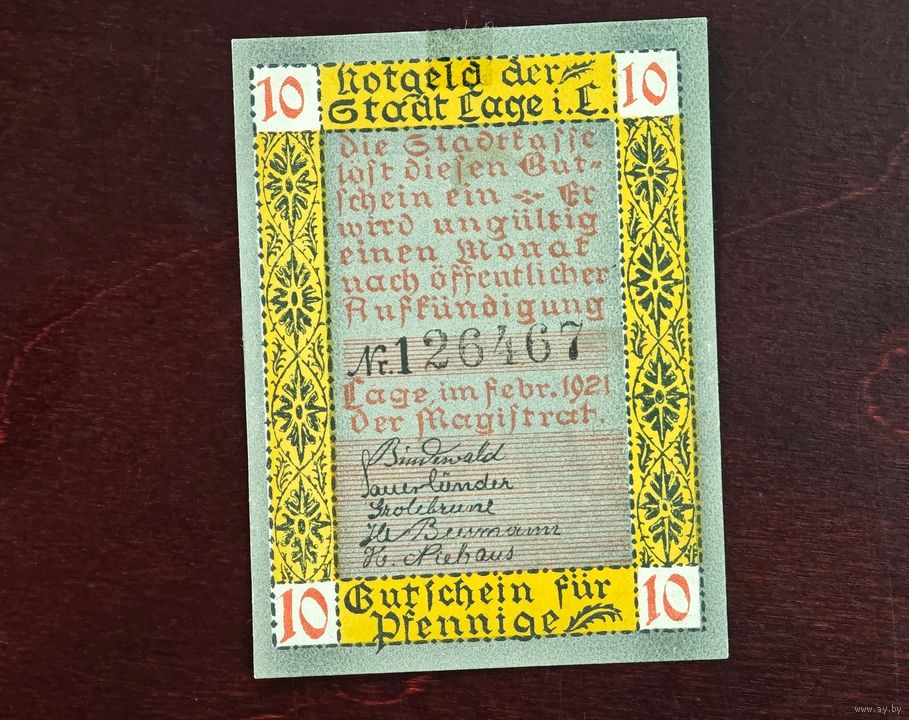 10 Notgeld der 10
Stadt Lage i. L.
die Stadtkasse
löst diesen Gut-
schein ein Er
wird ungültig
einen Monat
nach öffentlicher
Aufkündigung
Nr. 126467
Lage, im Febr. 1921
Der Magistrat.
Bindewald
Sauerländer
Grotebrune
H. Niehaus
10 Gutschein für 10
Pfennige
www.ay.by